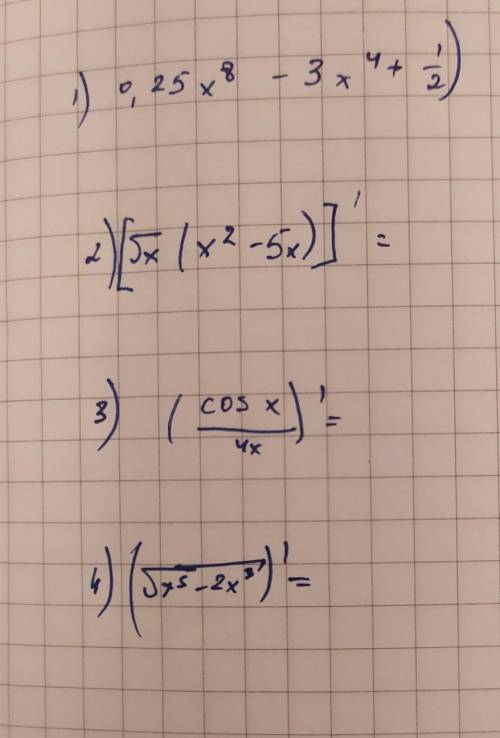 1) 0,25x⁸ - 3x⁴ + 1/2)
2) [√x (x² - 5x)]' =
3) (cos x / 4x)' =
4) (√(x⁵ - 2x³))' =